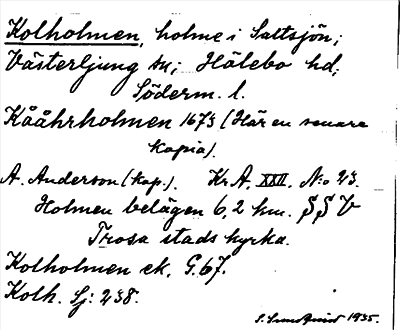 Kolholmen, holme i Saltsjön;
Västerljung sn; Hölebo hd;
Söderm. l.
Kååhrholmen 1673 (Här en senare
kopia).
A. Anderson (kop.). Kr.A. XXII. N:o 23.
Holmen belägen 6,2 km. SSV
Trosa stads kyrka.
Kolholmen ek. G.67.
Kolh. Sj: 238.
S. Sundquist 1935.